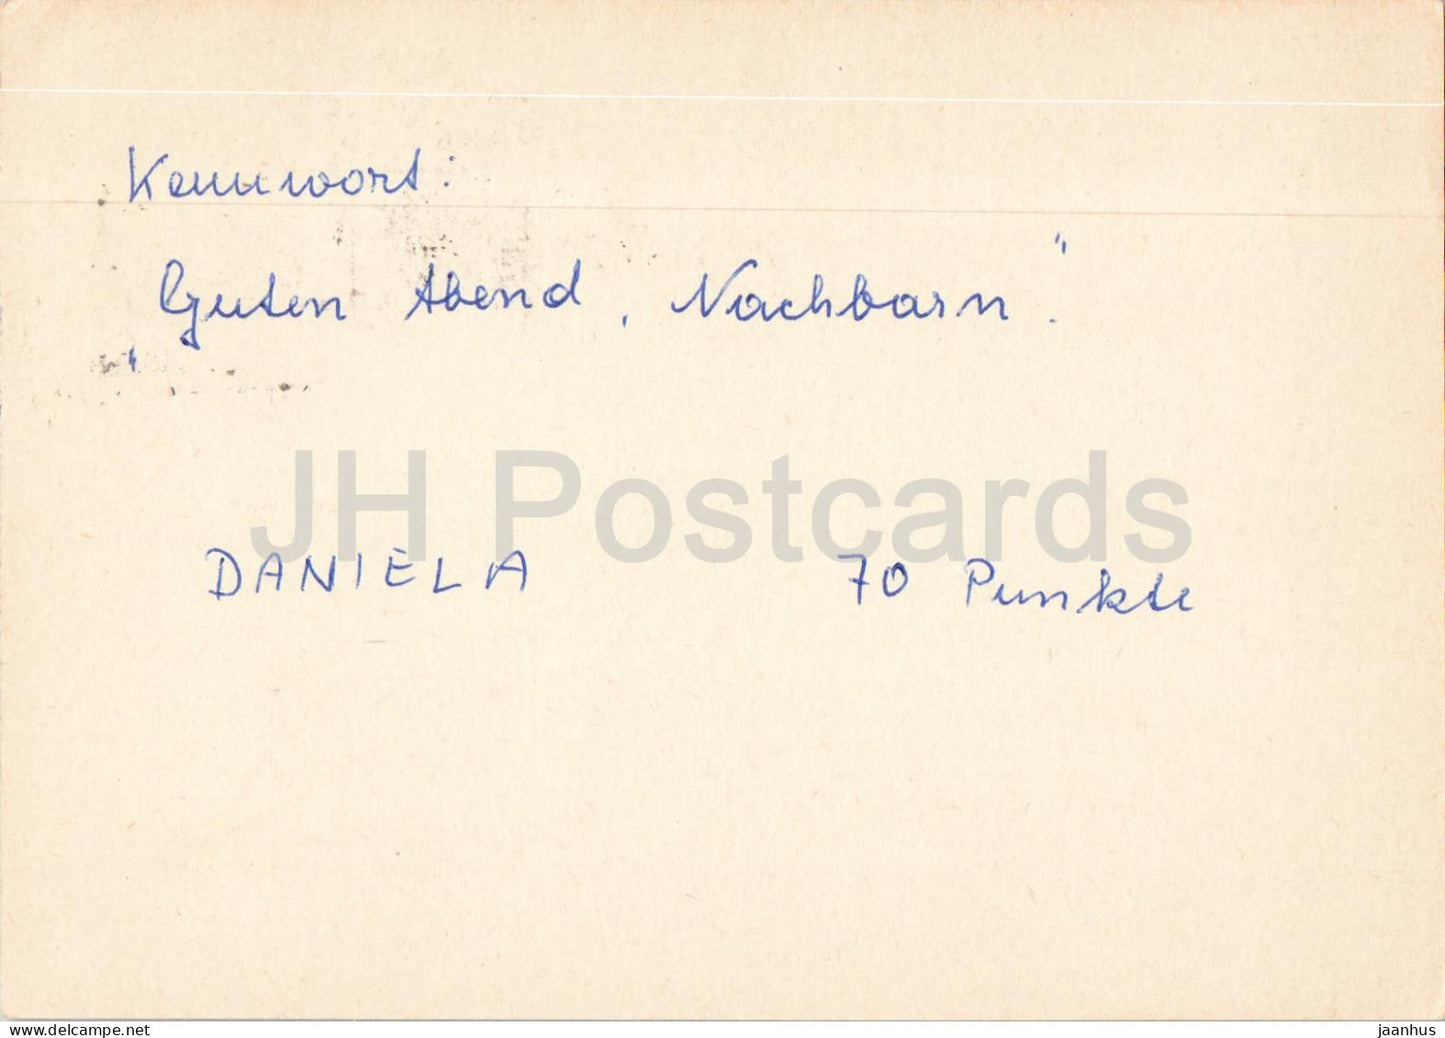 Kennwort:
„Guten Abend, Nachbarn“.
JH Postcards
DANIELA 70 Punkte
www.delcampe.net
jaanhus